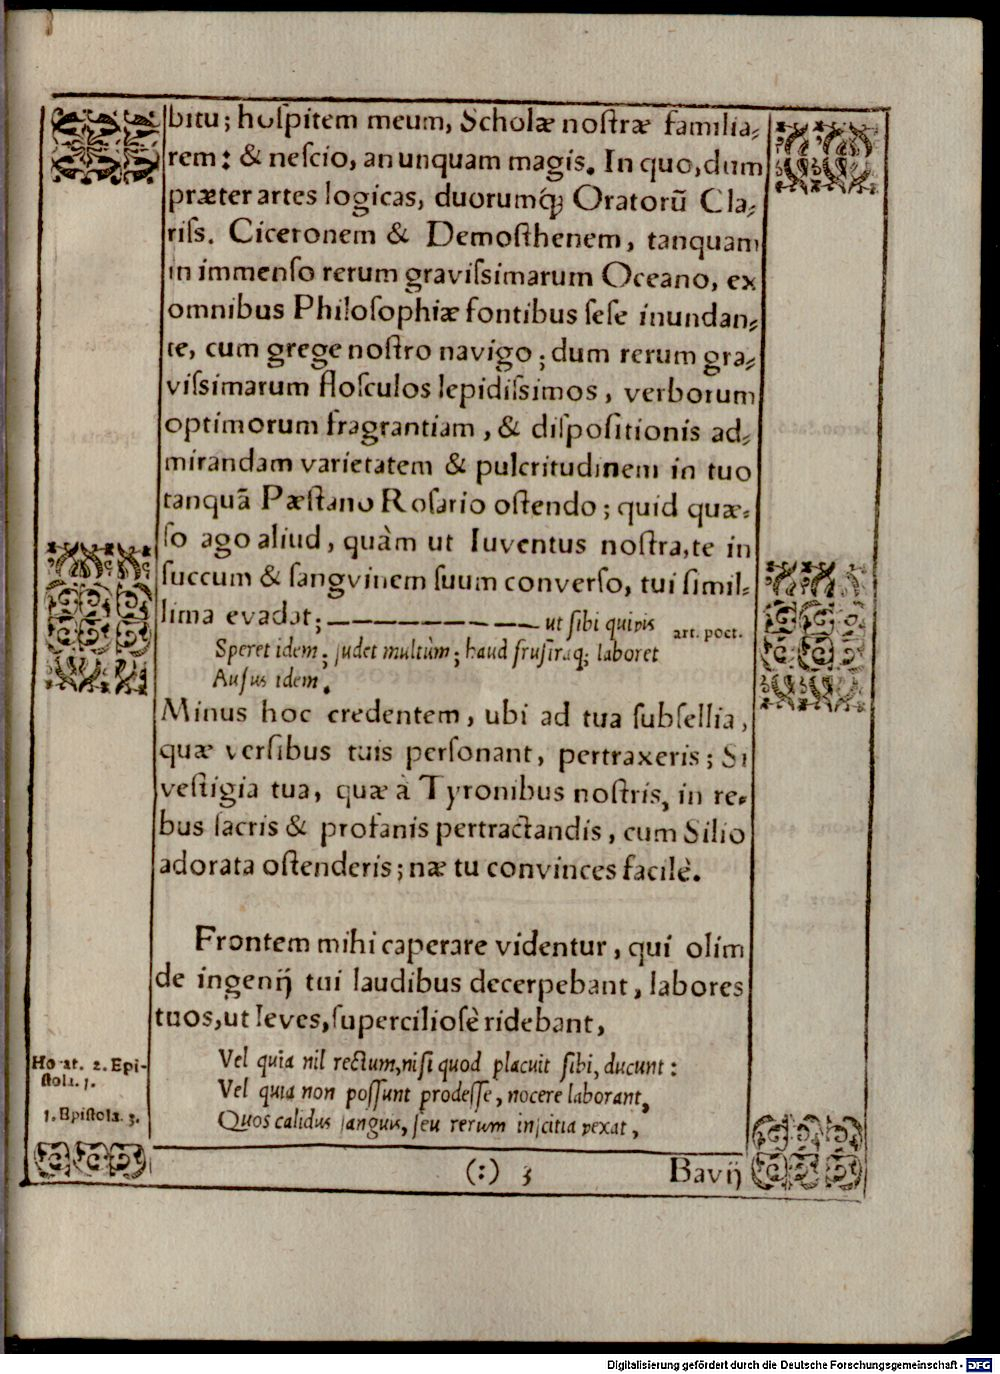 bitu; hoſpitem meum, Scholæ noſtræ familia⸗
rem: & neſcio, an unquam magis. In quo, dum
præter artes logicas, duorumq́; Oratorũ Cla⸗
riſs. Ciceronem & Demoſthenem, tanquam
in immenſo rerum graviſsimarum Oceano, ex
omnibus Philoſophiæ fontibus ſeſe inundan⸗
te, cum grege noſtro navigo; dum rerum gra⸗
viſsimarum floſculos lepidiſsimos, verborum
optimorum fragrantiam, & diſpoſitionis ad⸗
mirandam varietatem & pulcritudinem in tuo
tanquã Pæſtano Roſario oſtendo; quid quæ⸗
ſo ago aliud, quàm ut Iuventus noſtra, te in
ſuccum & ſangvinem ſuum converſo, tui ſimil⸗
lima evadat; — — — — — — — — — ut ſibi quivis
art. poet.
Speret idem; ſudet multùm; haud fruſtraq; laboret
Auſus idem.
Minus hoc credentem, ubi ad tua ſubſellia,
quæ verſibus tuis perſonant, pertraxeris; Si
veſtigia tua, quæ à Tyronibus noſtris, in re⸗
bus ſacris & profanis pertractandis, cum Silio
adorata oſtenderis; næ tu convinces facilè.
Frontem mihi caperare videntur, qui olim
de ingenij tui laudibus decerpebant, labores
tuos, ut leves, ſupercilioſè ridebant,
Horat. 2. Epi-
ſtola. 1.
Vel quia nil rectum, niſi quod placuit ſibi, ducunt:
Vel quia non poſſunt prodeſſe, nocere laborant,
1. Epiſtola. 3.
Quos calidus ſanguis, ſeu rerum inſcitia vexat,
(:) 3 Bavij
Digitalisierung gefördert durch die Deutsche Forschungsgemeinschaft - DFG